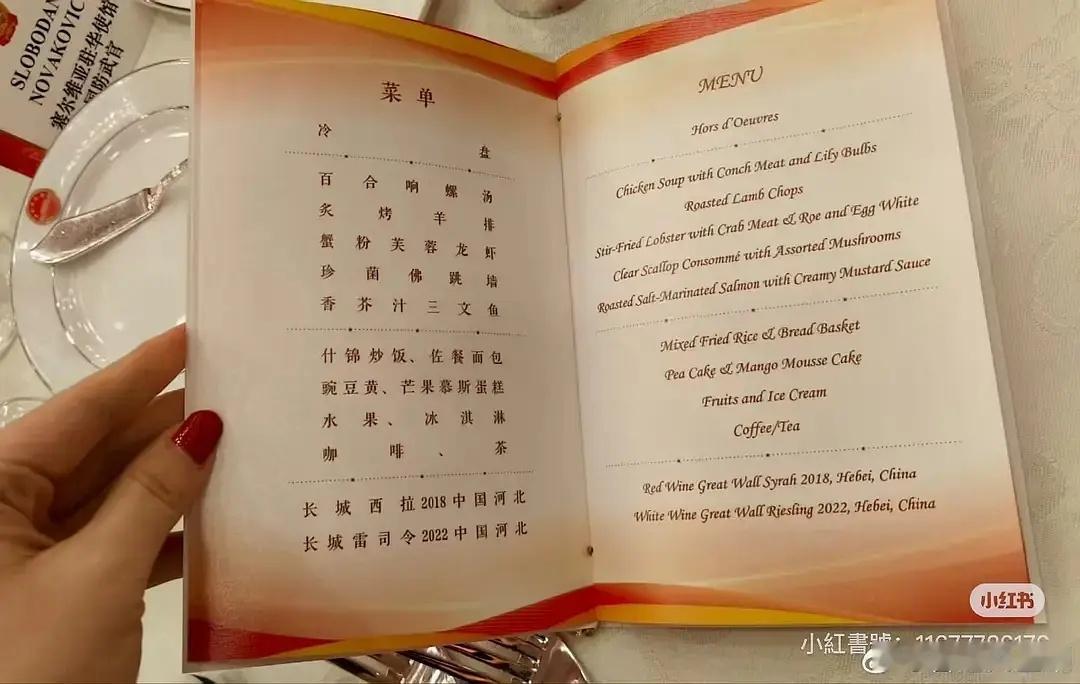 SLOBODAN
NOVAKOVIC
塞尔维亚驻华使馆
国防武官
菜单
冷盘
百合响螺汤
炙烤羊排
蟹粉芙蓉龙虾
珍菌佛跳墙
香芥汁三文鱼
什锦炒饭、佐餐面包
豌豆黄、芒果慕斯蛋糕
水果、冰淇淋
咖啡、茶
长城西拉2018中国河北
长城雷司令2022中国河北
MENU
Hors d'Oeuvres
Chicken Soup with Conch Meat and Lily Bulbs
Roasted Lamb Chops
Stir-Fried Lobster with Crab Meat & Roe and Egg White
Clear Scallop Consommé with Assorted Mushrooms
Roasted Salt-Marinated Salmon with Creamy Mustard Sauce
Mixed Fried Rice & Bread Basket
Pea Cake & Mango Mousse Cake
Fruits and Ice Cream
Coffee/Tea
Red Wine Great Wall Syrah 2018, Hebei, China
White Wine Great Wall Riesling 2022, Hebei, China
小红书
小紅書號：